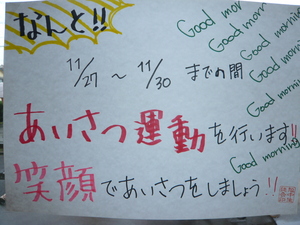 なんと!!
11/27 ～ 11/30 までの間
あいさつ運動を行います!!
笑顔であいさつをしましょう!!
Good mor
Good morn
Good morn
Good morn
Good morn
Good morning
Good morning